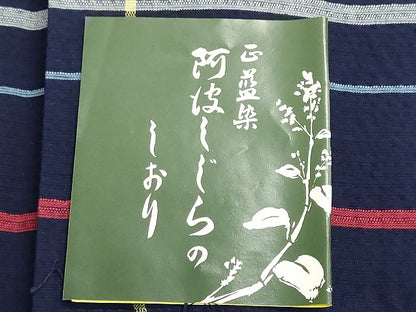 正藍染
阿波しじらの
しおり